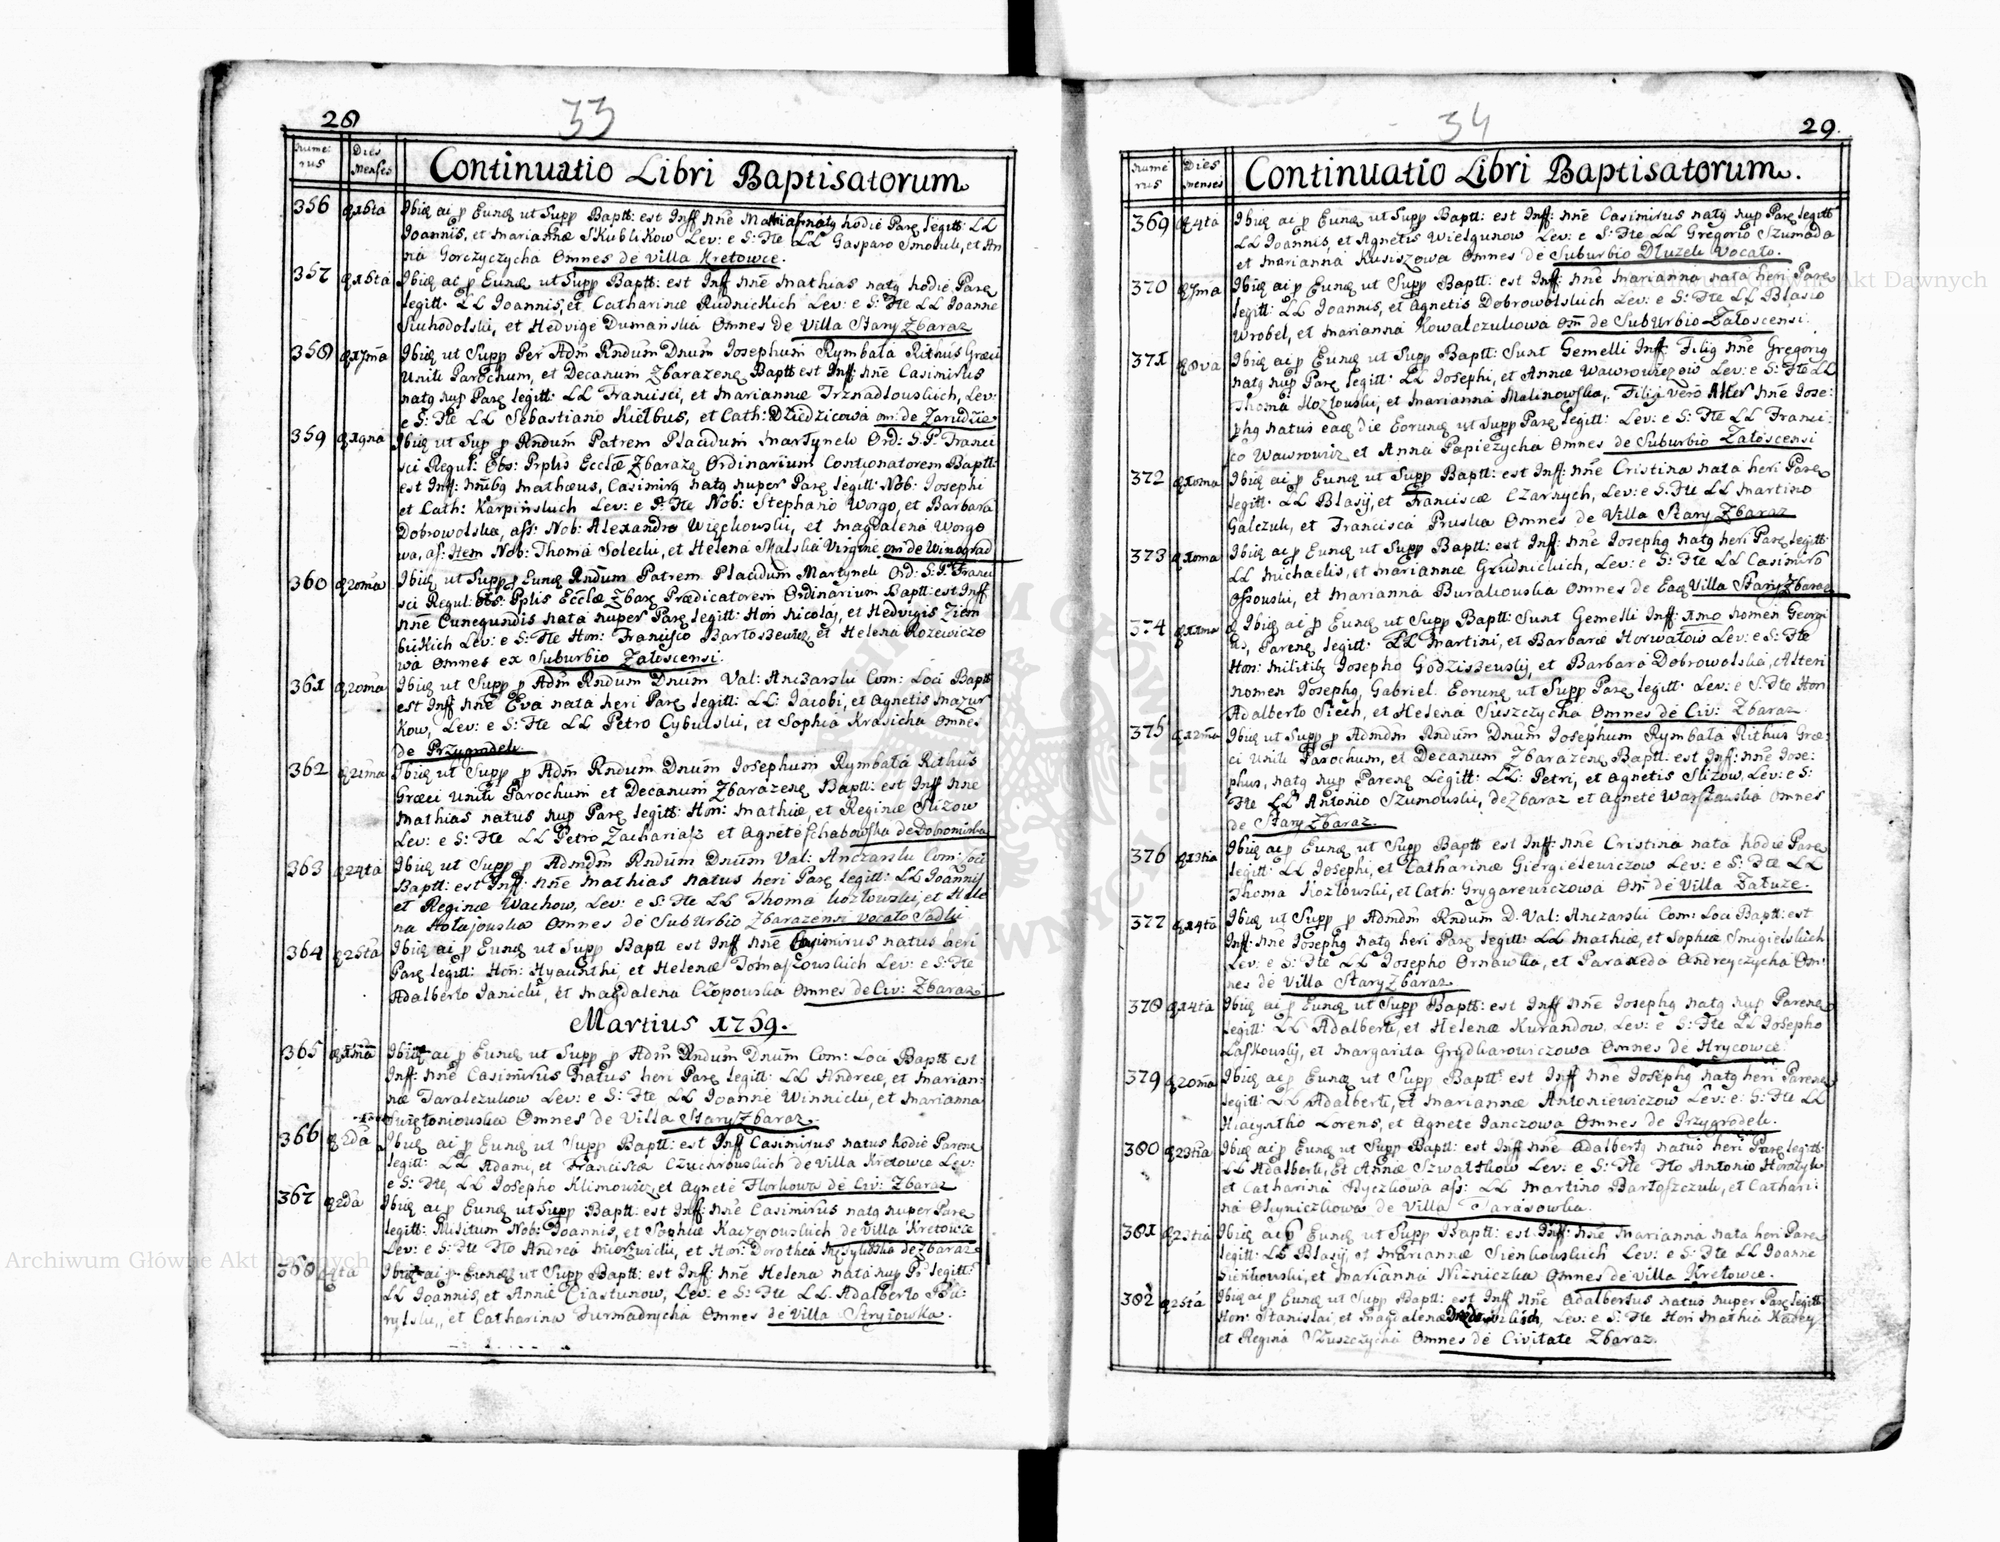 28
33
Nume: rus
Dies Menses
Continuatio Libri Baptisatorum
356 16ta Ibid ai p Eund ut Supp Baptt: est Inff Nne Mathias natg hodie Par legitt: LL
Joannis, et Mariannæ Skublikow Lev: e S: Fte LL Gasparo Smoluk, et An
na Gorczyczycha Omnes de Villa Kretowce.
357 16ta Ibid ai p Eund ut Supp Baptt: est Inff Nne Mathias natg hodie Par
legitt: LL Joannis, et Catharinæ Rudnickich Lev: e S: Fte LL Joanne
Suhodolski, et Hedvige Dumańska Omnes de Villa Stary Zbaraz
358 17ma Ibid ut Supp Per Adm Rndum Dnum Josephum Rymbała Rithus Græci
Uniti Parochum, et Decanum Zbarazens Baptt est Inff: Nne Casimirus
natg nup Par legitt: LL Francisci, et Mariannæ Trznadlouskich, Lev:
e S: Fte LL Sebastiano Kiełbus, et Cath: Dziedzicowa om: de Zarudzie
359 19na Ibid ut Sup p Rndum Patrem Placidum Martynek Ord: S: P: Franci
sci Regul: Obs: Prplis Ecclæ Zbaraz Ordinarium Contionatorem Baptt:
est Inff: Nnibg Mathæus, Casimirg natg nuper Par legitt: Nob: Josephi
et Cath: Karpinskich Lev: e S: Fte Nob: Stephano Worgo, et Barbara
Dobrowolska, ass: Nob: Alexandro Więckowski, et Magdalena Worgo
wa, as: Item Nob: Thoma Solecki, et Helena Skalska Virgine om de Winograd
360 20ma Ibid ut Supp p Eund Rndum Patrem Placidum Martynek Ord: S: P: Franci
sci Regul: Obs: Pplis Ecclæ Zbar Prædicatorem Ordinarium Baptt: est Inff
Nne Cunegundis nata nuper Par legitt: Hon Nicolai, et Hedvigis Ziem
bickich Lev: e S: Fte Hon: Francisco Bartoszewicz, et Helena Rozewiczo
wa Omnes ex Suburbio Załoscensi.
361 20ma Ibid ut Supp p Adm Rndum Dnum Val: Anczarski Com: Loci Baptt
est Inff Nne Eva nata heri Par legitt: LL: Jacobi, et Agnetis Mazur
kow, Lev: e S: Fte LL Petro Cybulski, et Sophia Krasicha Omnes
de Przygrodek
362 21ma Ibid ut Supp p Adm Rndum Dnum Josephum Rymbała Rithus
Græci Uniti Parochum et Decanum Zbarazens Baptt: est Inff Nne
Mathias natus nup Par legitt: Hon: Mathiæ, et Reginæ Slizow
Lev: e S: Fte LL Petro Zachariasz et Agnete Schabowska de Dobromirka
363 24ta Ibid ut Supp p Admdm Rndum Dnum Val: Anczarski Com: Loci
Baptt: est Inff: Nne Mathias natus heri Par legitt: LL Joannis
et Reginæ Wachow, Lev: e S: Fte LL Thoma Kozłowski, et Hele
na Hołajouska Omnes de Suburbio Zbarazensi vocato Sadki
364 25ta Ibid ai p Eund ut Supp Baptt est Inff Nne Casimirus natus heri
Par legitt: Hon: Hyacinthi, et Helenæ Tomaszouskich Lev: e S: Fte
Adalberto Janicki, et Magdalena Czopouska Omnes de Civ: Zbaraz
Martius 1769.
365 1ma Ibid ai p Eund ut Supp p Adm Rndum Dnum Com: Loci Baptt est
Inff: Nne Casimirus natus heri Par legitt: LL Andreæ, et Marian:
næ Taralczukow Lev: e S: Fte LL Joanne Winnicki, et Marianna
Swiętoniouska Omnes de Villa Stary Zbaraz.
366 2da Ibid ai p Eund ut Supp Baptt: est Inff Casimirus natus hodie Paren
legitt: LL Adami, et Franciscæ Czuchrouskich de Villa Kretowce Lev:
e S: Fte, LL Josepho Klimowicz, et Agnete Florkowa de Civ: Zbaraz
367 2da Ibid ai p Eund ut Supp Baptt: est Inff: Nne Casimirus natg nuper Par
legitt: Militum Nob: Joannis, et Sophiæ Kaczorouskich de Villa Kretowce
Lev: e S: Fte Fto Andrea Miorkwicki, et Hon: Dorothea de Zbaraz
368 4ta Ibid ai p Eund ut Supp Baptt: est Inff: Nne Helena nata nup Pr legitt:
LL Joannis, et Annæ Ciastunow, Lev: e S: Fte LL. Adalberto Bu:
rylski, et Catharina Furmadrycha Omnes de Villa Stryiowka.
34
29.
Nume rus
Dies Menses
Continuatio Libri Baptisatorum.
369 4ta Ibid ai p Eund ut Supp Baptt: est Inff: Nne Casimirus natg nup Par legitt
LL Joannis, et Agnetis Wielgunow Lev: e S: Fte LL Gregorio Szumada
et Marianna Kusiszowa Omnes de Suburbio Dłuzek Vocato.
370 7ma Ibid ai p Eund ut Supp Baptt: est Inff: Nne Marianna nata heri Par
legitt: LL Joannis, et Agnetis Dobrowolskich Lev: e S: Fte LL Blasio
Wrobel, et Marianna Kowalczukowa Om de Suburbio Załoscensi.
371 8va Ibid ai p Eund ut Supp Baptt: Sunt Gemelli Inff: Filig Nne Gregorig
natg nup Par legitt: LL Josephi, et Annæ Wawrowiczow Lev: e S: Fte LL
Thoma Kozłouski, et Marianna Malinowska, Filig vero Alter Nne Jose:
phg natus ead die Eorund ut Supp Par legitt: Lev: e S: Fte LL Franci:
co Wawrowicz et Anna Papiezycha Omnes de Suburbio Załoscensi
372 10ma Ibid ai p Eund ut Supp Baptt: est Inff: Nne Cristina nata heri Par
legitt: LL Blasij, et Franciscæ Czarnych, Lev: e S: Fte LL Martino
Galczuk, et Francisca Pruska Omnes de Villa Stary Zbaraz
373 10ma Ibid ai p Eund ut Supp Baptt: est Inff: Nne Josephg natg heri Par legitt:
LL Michaelis, et Mariannæ Grudnickich, Lev: e S: Fte LL Casimiro
Ossouski, et Marianna Burakouska Omnes de Ead Villa Stary Zbaraz
374 11ma Ibid ai p Eund ut Supp Baptt: Sunt Gemelli Inff: 1mo Nomen Georgi
us, Parens legitt: LL Martini, et Barbaræ Horwatow Lev: e S: Fte
Hon: Militib Josepho Godziszeuskij, et Barbara Dobrowolska, Alteri
nomen Josephg, Gabriel. Eorund ut Supp Par legitt: Lev: e S: Fte Hon
Adalberto Siech, et Helena Suszczycha Omnes de Civ: Zbaraz
375 12ma Ibid ut Supp p Admdm Rndum Dnum Josephum Rymbała Rithus Græ:
ci Uniti Parochum, et Decanum Zbarazens Baptt: est Inff: Nne Jose:
phus, natg nup Parens Legitt: LL: Petri, et Agnetis Slizow, Lev: e S:
Fte LL Antonio Szumouski, de Zbaraz et Agnete Warszauska Omnes
de Stary Zbaraz.
376 13tia Ibid ai p Eund ut Supp Baptt est Inff: Nne Cristina nata hodie Par
legitt: LL Josephi, et Catharinæ Giergielewiczow Lev: e S: Fte LL
Thoma Kozłowski, et Cath: Grygarewiczowa Om de Villa Załuze.
377 14ta Ibid ut Supp p Admdm Rndum D. Val: Anczarski Com: Loci Baptt: est
Inff: Nne Josephg natg heri Par legitt: LL Mathiæ, et Sophiæ Smigielskich
Lev: e S: Fte LL Josepho Ornawka, et Paraxeda Andreyczycha Om:
nes de Villa Stary Zbaraz
378 14ta Ibid ai p Eund ut Supp Baptt: est Inff Nne Josephg natg nup Parens
legitt: LL Adalberti, et Helenæ Kurandow, Lev: e S: Fte LL Josepho
Laskouskij, et Margarita Grydkarowiczowa Omnes de Hrycowce
379 20ma Ibid ai p Eund ut Supp Baptt: est Inff Nne Josephg natg heri Parens
legitt: LL Adalberti, et Mariannæ Antoniewiczow Lev: e S: Fte LL
Hiacyntho Lorens, et Agnete Janczowa Omnes de Przygrodek.
380 23tia Ibid ai p Eund ut Supp Baptt: est Inff Nne Adalbertg natus heri Par legitt:
LL Adalberti, et Annæ Szwałtkow Lev: e S: Fte Fto Antonio Horatyk
et Catharina Byczkowa ass: LL Martino Bartoszczuk, et Cathari:
na Oleyniczkowa de Villa Tarasowka.
381 23tia Ibid ai p Eund ut Supp Baptt: est Inff: Nne Marianna nata heri Par
legitt: LL Blasij, et Mariannæ Sienkouskich Lev: e S: Fte LL Joanne
Sieńkouski, et Marianna Nizniczka Omnes de Villa Kretowce.
382 25ta Ibid ai p Eund ut Supp Baptt: est Inff Nne Adalbertus natus nuper Par legitt
Hon: Stanislai, et Magdalenæ Lev: e S: Fte Hon Mathia Kadey
et Regina Słuszczycha Omnes de Civitate Zbaraz.
Archiwum Główne Akt Dawnych
Archiwum Główne Akt Dawnych